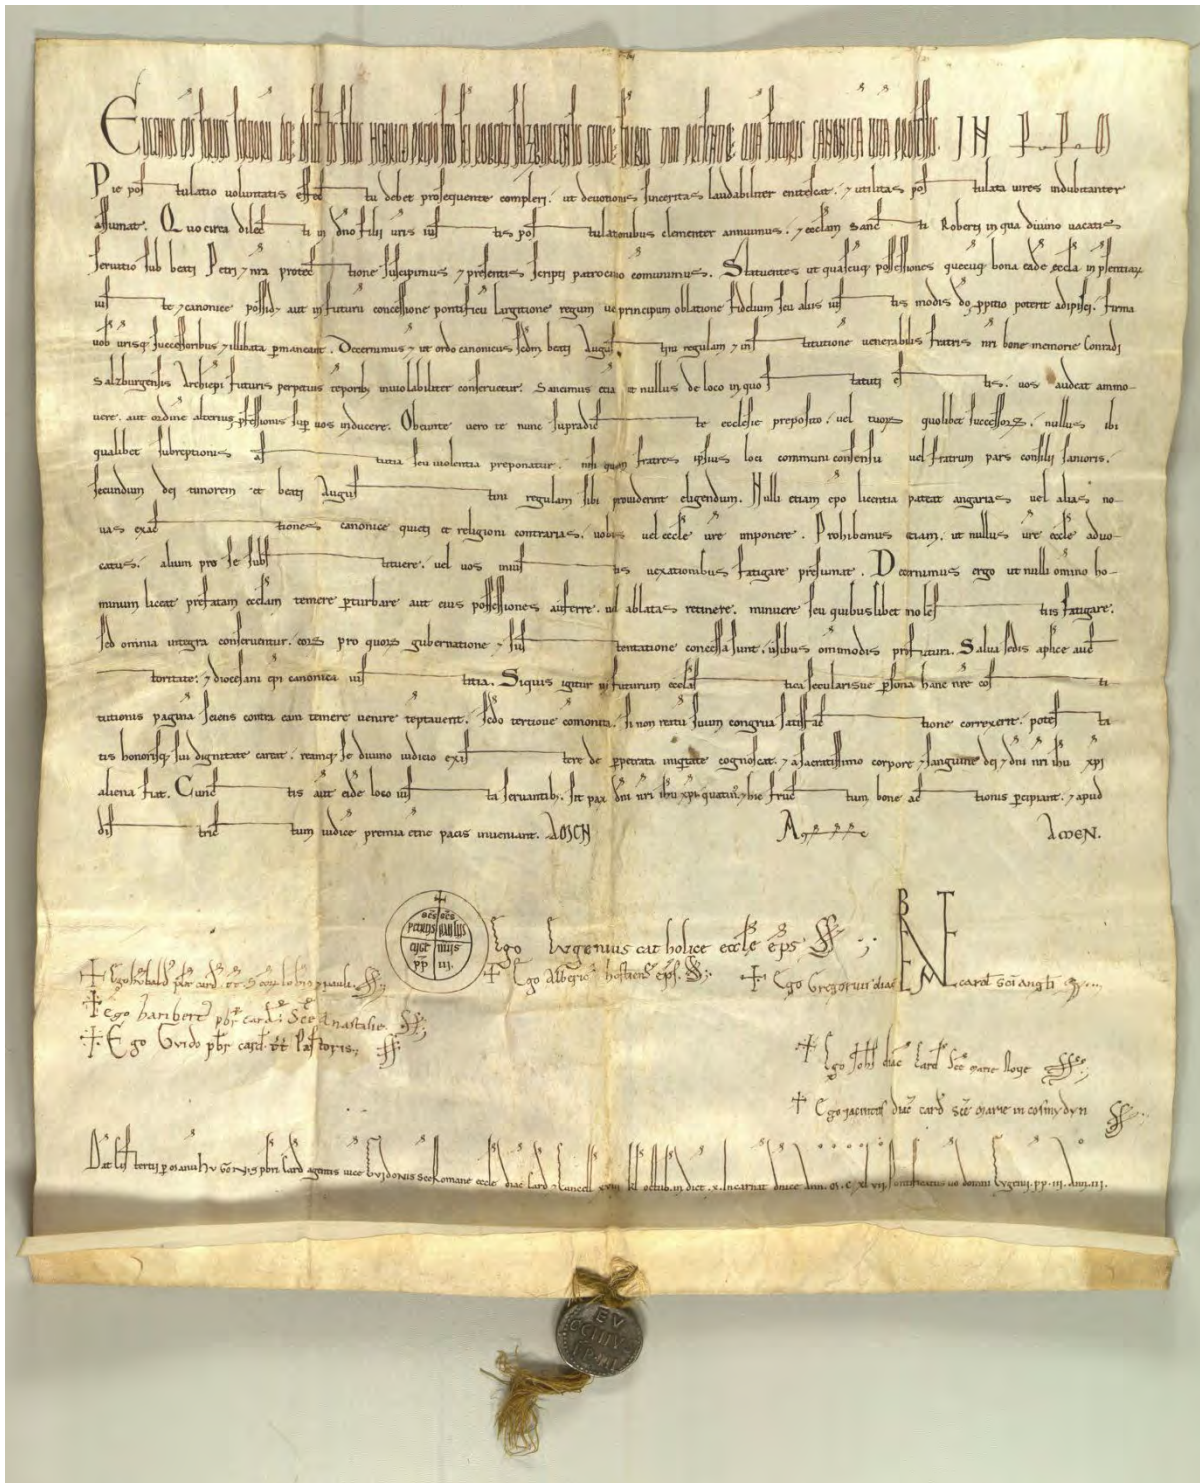 Eugenius eps servus servorum dei. Dilectis filiis Henrico preposito sci Roberti salzburgensis eiusq; fratribus tam presentibus qua futuris canonica vita professis. IN PPO
Pie postulatio voluntatis effectu debet prosequente compleri. ut devotionis sinceritas laudabiliter enitescat. ⁊ utilitas postulata vires indubitanter
assumat. Quo circa dilecti in dño filii vris iustis postulationibus clementer annuimus. ⁊ ecclam sancti Roberti in qua divino vacatis
servitio sub beati Petri ⁊ nra protectione suscipimus ⁊ presentis scripti patrocinio comunimus. Statuentes ut quascuq; possessiones quecuq; bona eade eccla in psentiaꝝ
iuste ⁊ canonice possid; aut in futuru concessione pontificu largitione regum vel principum oblatione fidelium seu aliis iustis modis do ppitio poterit adipisci. firma
vob vrisq; successoribus ⁊ illibata pmaneant. Decernimus ⁊ ut ordo canonicus scdm beati Augustini regulam ⁊ institutione venerabilis fratris nri bone memorie Conradi
Salzburgensis Archiepi futuris perpetuis teporib; inviolabiliter conservetur. Sancimus etia ut nullus de loco in quo statuti estis. vos audeat ammo-
vere. aut ordine alterius pfessionis sup vos inducere. Obeunte vero te nunc supradicte ecclesie preposito. vel tuoꝝ quolibet successoꝝ. nullus ibi
qualibet subreptionis astutia seu violentia preponatur. nisi quem fratres ipsius loci communi consensu vel fratrum pars consilii sanioris.
secundum dei timorem et beati Augustini regulam sibi providerint eligendum. Nulli etiam epo licentia pateat angarias vel alias no-
vas exactiones canonice quieti et religioni contrarias. vobis vel eccle vre imponere. Prohibemus etiam. ut nullus vre eccle advo-
catus. alium pro se substituere. vel vos iniustis vexationibus fatigare presumat. Decernimus ergo ut nulli omino ho-
minum liceat prefatam ecclam temere pturbare aut eius possessiones auferre. vel ablatas retinere. minuere seu quibuslibet molestiis fatigare.
sed omnia integra conserventur. eoꝝ pro quoꝝ gubernatione ⁊ sustentatione concessa sunt. usibus omimodis pfutura. Salva sedis aplice auc
toritate. ⁊ diocesani epi canonica iustitia. Siquis igitur in futurum ecclastica secularisve psona hanc nre costi
tutionis pagina sciens contra eam temere venire teptaverit. scdo tertiove comonita. si non reatu suum congrua satisfactione correxerit. potesta
tis honorisq; sui dignitate careat. reamq; se divino iudicio existere de ppetrata iniqtate cognoscat. ⁊ a sacratissimo corpore ⁊ sanguine dei ⁊ dni nri ihu xpi
aliena fiat. Cunctis aut eide loco iusta servantib; sit pax dni nri ihu xpi. quatin⁹ ⁊ hic fructum bone actionis pcipiant. ⁊ apud
districtum iudice premia etne pacis inveniant. AMEN Amen AMEN.
scs PETRUS scs PAULUS EUGENIUS PP III.
Ego Eugenius catholice eccle eps SS
BENE VALETE
+ Ego Albericus hostiensis eps. SS
+ Ego Gregorius diac card sci angli
+ Ego hubald⁹ pbr card tt scoꝝ Iohis ⁊ pauli SS
+ Ego haribert⁹ pbr card sce Anastasie SS
+ Ego Guido pbr card tt Pastoris SS
+ Ego Iohs diac card sce marie Nove SS
+ Ego Jacinctus diac card sce Marie in cosmydyn SS
Dat p manu hugonis pbri card agentis vice Guidonis sce Romane eccle diac card ⁊ Cancell xviii kl octub. indict. x. Incarnat dnice Ann. M. C. xl vii Pontificatus vo domni Eugenii. pp. iii. Ann. iii.
EV
GENIVS
PP III